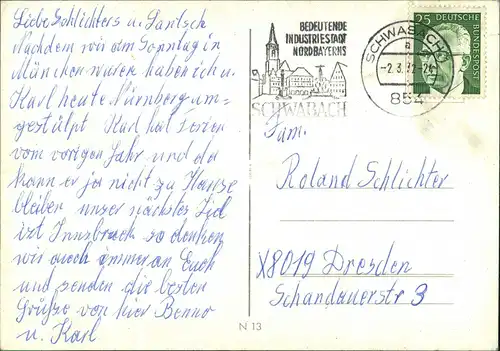 Liebe Schlichters u. Pantsch
Nachdem wir am Sonntag in
München waren haben ich u.
Karl heute Nürnberg um-
gestülpt Karl hat Ferien
vom vorigen Jahr und da
kann er ja nicht zu Hause
bleiben unser nächstes Ziel
ist Innsbruck so denken
wir auch immer an Euch
und senden die besten
Grüße von hier Benno
u. Karl
BEDEUTENDE
INDUSTRIESTADT
NORDBAYERNS
SCHWABACH
SCHWABACH
a
-2.3.72-
854
25 DEUTSCHE
BUNDESPOST
Fam.
Roland Schlichter
X8019 Dresden
Schandauerstr 3
N 13